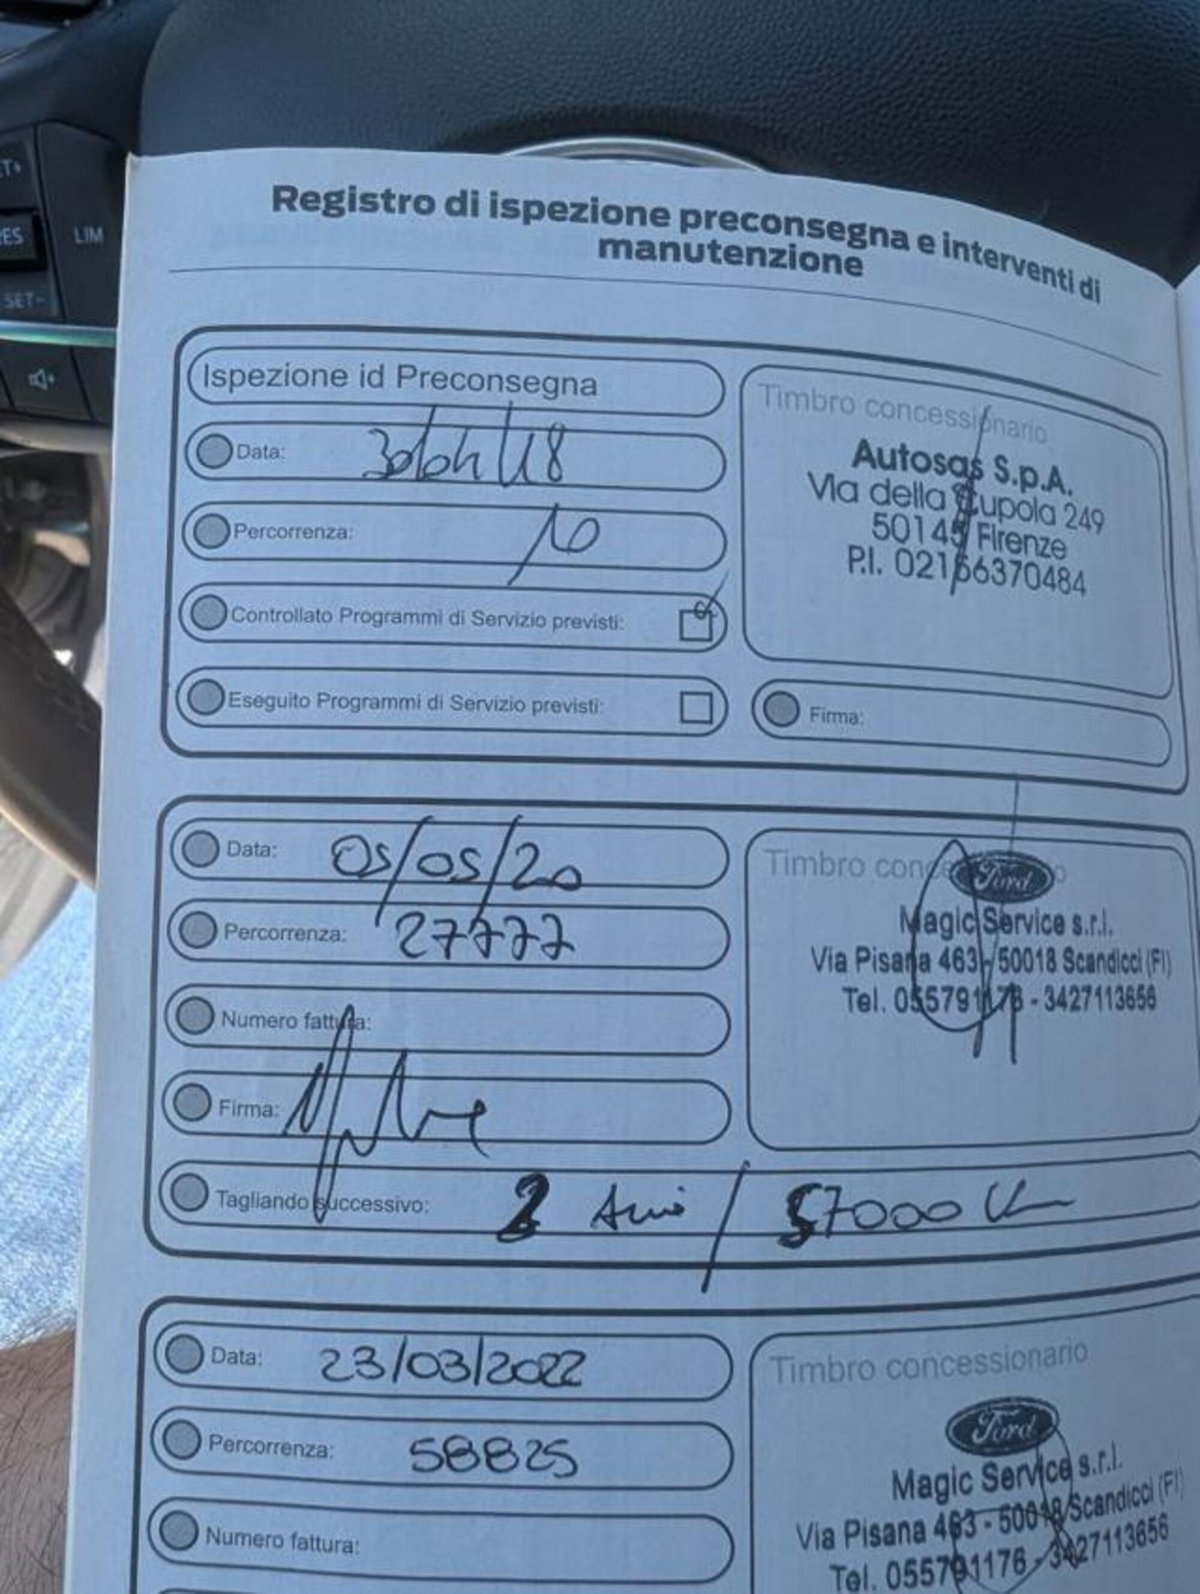 LIM
SET-
Registro di ispezione preconsegna e interventi di
manutenzione
Ispezione id Preconsegna
Data: 30/04/18
Percorrenza: 10
Controllato Programmi di Servizio previsti:
Eseguito Programmi di Servizio previsti:
Timbro concessionario
Autosas S.p.A.
Via della Cupola 249
50145 Firenze
P.I. 02166370484
Firma:
Data: 05/05/20
Percorrenza: 27777
Numero fattura:
Firma:
Tagliando successivo: 2 Anni / 57000 Km
Timbro concessionario
Ford
Magic Service s.r.l.
Via Pisana 463 - 50018 Scandicci (FI)
Tel. 055791176 - 3427113656
Data: 23/03/2022
Percorrenza: 58825
Numero fattura:
Timbro concessionario
Ford
Magic Service s.r.l.
Via Pisana 463 - 50018 Scandicci (FI)
Tel. 055791176 - 3427113656